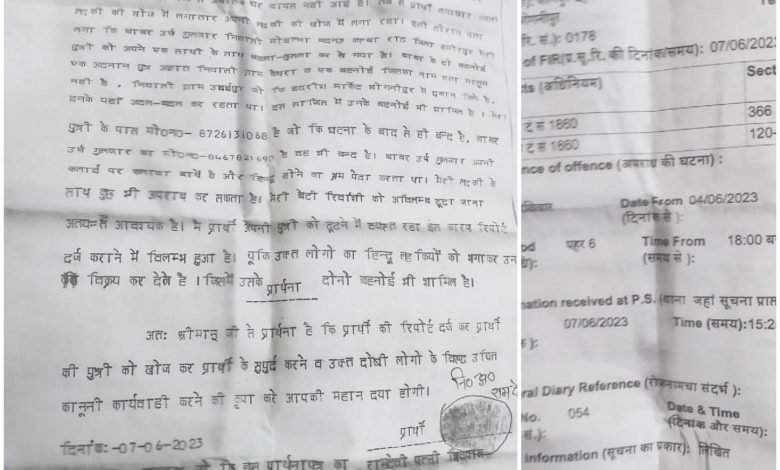 पर वापत नहीं आई है।
लड़की की खोज में लगातार अपनी लड़की की खोज में लगा रहा। इसी दौरान पता
लगा कि बाबर उर्फ गुलजार निवासी मोहल्ला कस्बा राठ जिला हमीरपुर मेरी
पुत्री को अपने एक साथी के साथ बहला-फुसला कर ले गया है। बाबर के दो बहनोई
एक अदनान पुत्र निवासी ग्राम व एक बहनोई जिसका नाम पता मालूम
नहीं है, निवासी ग्राम जो कि मार्केट भोगनीपुर में दुकान किये है,
इनके यहाँ अदल-बदल कर रहता था। इस साजिस में उनके बहनोई भी शामिल है। मेरी
पुत्री के पास मो०न०- 8726131068 है जो कि घटना के बाद से ही बन्द है, बाबर
उर्फ गुलजार का मो०न०-8467821690 है वह भी बन्द है। बाबर उर्फ गुलजार अपनी
कलाई पर कलावा बांधे है और हिन्दू होने का भ्रम पैदा करता था। मेरी लड़की के
साथ कुछ भी अपराध कर सकता है। मेरी बेटी को अविलम्ब ढूढा जाना
अत्यन्त आवश्यक है। मै प्रार्थी अपनी पुत्री को ढूढने में व्यस्त रहा इस कारण रिपोर्ट
दर्ज कराने में विलम्भ हुआ है। चूकि उक्त लोगो का हिन्दू लड़कियों को भगाकर उन
विक्रय कर देते है। जिसमें उसके दोनो बहनोई भी शामिल है।
प्रार्थना
अतः श्रीमान् जी से प्रार्थना है कि प्रार्थी की रिपोर्ट दर्ज कर प्रार्थी
की पुत्री को खोज कर प्रार्थी के सुपुर्द करने व उक्त दोषी लोगो के विरूद्ध उचित
कानूनी कार्यवाही करने की कृपा करे आपकी महान दया होगी।
नि०अ०
रामदे
प्रार्थी
दिनांक:-07-06-2023
कि इस प्रार्थनापत्र का रामदेवी पत्नी
रि. सं.): 0178
of FIR(प्र.सू.रि. की दिनांक/समय): 07/06/2023
ts (अधिनियम)
Sect
ट सं 1860
366
ट सं 1860
120-
nce of offence (अपराध की घटना) :
Date From 04/06/2023
(दिनांक से ):
od पहर 6
Time From 18:00 ब
(समय से ):
nation received at P.S. (थाना जहां सूचना प्राप्त
07/06/2023 Time (समय):15:2
ral Diary Reference (रोजनामचा संदर्भ ):
No. 054
Date & Time
(दिनांक और समय):
सं.):
Information (सूचना का प्रकार): लिखित